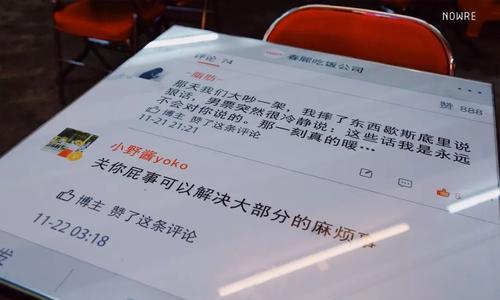 NOWRE
春厨吃饭公司
评论 74
赞 888
-脂肪-
那天我们大吵一架，我摔了东西歇斯底里说
狠话，男票突然很冷静说：这些话我是永远
不会对你说的。那一刻真的暖…
11-21 21:21
博主 赞了这条评论
小野酱yoko
关你屁事可以解决大部分的麻烦事
博主 赞了这条评论
11-22 03:18
发